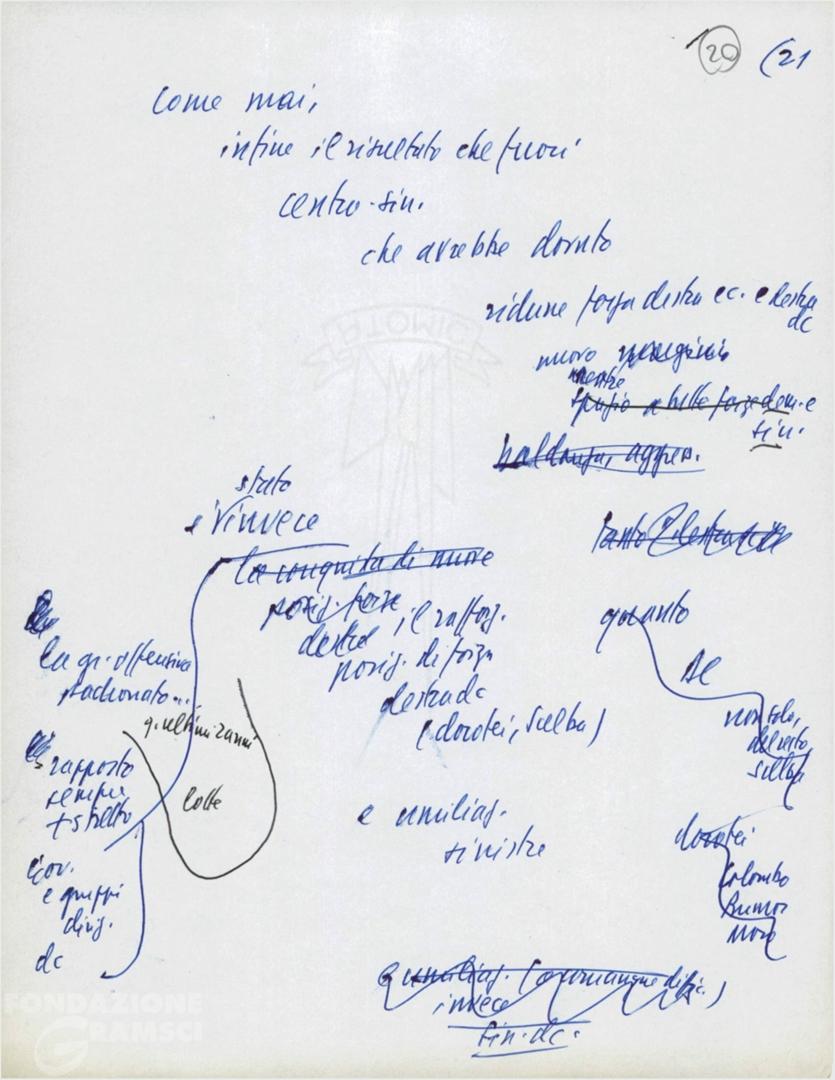 20 (21
Come mai,
infine il risultato che fuori
centro-sin.
che avrebbe dovuto
ridurre forza destra ec. e destra
dc
nuovo
mentre
spazio a delle forze dem. e
sin.
baldanza, aggres.
stato
e invece
la conquista di nuove
posiz. forze
destre
il raffor.
posiz. di forza
destra dc
(dorotei, Scelba)
tanto
quanto
DC
non solo,
del resto,
Scelba
dorotei
Colombo
Rumor
Moro
la gr. offensiva
padronato...
q. ultimi anni
lotte
rapporto
sempre
+ stretto
Gov.
e gruppi
dirig.
dc
e umiliaz.
sinistre
e umiliaz. (o comunque
invece
sin. dc.
FONDAZIONE
GRAMSCI